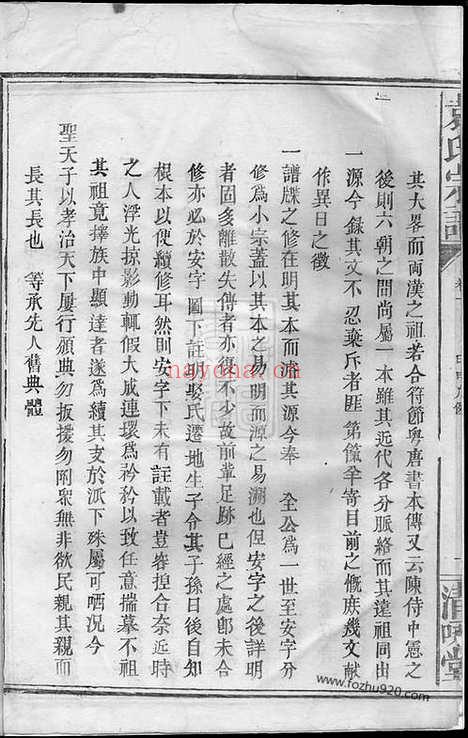 其大畧而兩漢之祖若合符節粤唐書本傳又云陳侍中憲之
後則六朝之間尚屬一本雖其近代各分脈絡而其遠祖同出
一源今錄其文不忍棄斥者匪第籠罕寄目前之慨庶幾文献
作異日之徵
一譜牒之修在明其本而溯其源今奉 全公爲一世至安字分
修爲小宗蓋以其本之易明而源之易溯也但安字之後詳明
者固多離散失傳者亦復不少故前輩足跡已經之處卽未合
修亦必於安字圖下註明娶氏遷地生子令其子孫日後自知
根本以便續修耳然則安字下未有註載者豈容揑合奈近時
之人浮光掠影動輒假大成連環爲衿矜以致任意揣摹不祖
其祖竟擇族中顯達者遂爲續其支於派下殊屬可哂况今
聖天子以孝治天下屢行頒典勿扳援勿附衆無非欲民親其親而
長其長也 等承先人舊典體
袁氏宗譜
卷一
nayona.cn
www.fozhu920.com